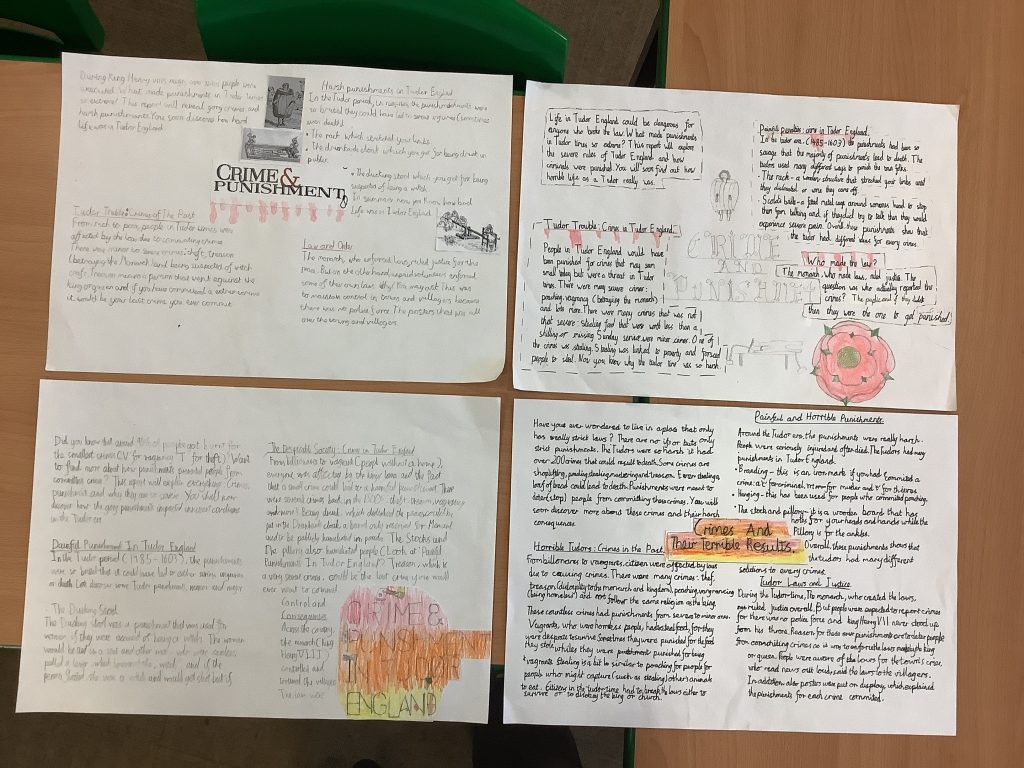 During King Henry was reign, people were
executed. What made punishments in Tudor times
so extreme? This report will reveal gory crimes and
harsh punishments. You soon discover how hard
life was in Tudor England.
Tudor Trouble: Crime of The Past
From rich to poor, people in Tudor times were
affected by the law due to committing crime.
There were severe crimes: theft, treason
(betraying the Monarch) and being suspected of witch
craft. Treason means a person that went against the
king or queen and if you have commited a
it would be your last crime you ever commit.
CRIME &
PUNISHMENT
Harsh punishments in Tudor England
In the Tudor period, the punishments were
so brutal they could have led to serious injuries (sometimes
even death)
• The rack which stretched your limbs
• The drunkards cloak which you got for being drunk in
public.
• The ducking stool which you got for being
suspected of being a witch.
In summary now you know how bad
life was in Tudor England
Law and Order
The monarch, who enforced laws, ruled justice for this
to maintain control in towns and villages because
there was no police force. The posters that was all
over the towns and villages.
Life in Tudor England could be dangerous for
anyone who broke the law. What made punishments
in Tudor times so extreme? This report will explore
the severe rules of Tudor England and how
criminals were punished. You will soon find out how
horrible life as a Tudor really was.
Tudor Trouble: Crime in Tudor England
People in Tudor England would have
been punished for crimes that may seem
small today but were a threat in Tudor
times. There were many severe crimes:
poaching, vagrancy, (betraying the monarch)
and lots more. There were many crimes that was not
that severe - stealing food that were worth less than a
shilling or missing Sunday service were minor crimes. One of
the crimes was stealing. Stealing was linked to poverty and forced
people to steal. Now you know why the tudor time was so harsh.
CRIME
AND
PUNISHMENT
Painful punishments in Tudor England.
In the tudor era, (1485-1603) punishments had been so
savage that the majority of punishments lead to death. The
tudors used many different ways to punish the town folks.
• The rack - a wooden structure that stretched your limbs and
they dislocated or worse they came off.
• Scolds bridle - a fatal metal cage around someones head to stop
them from talking and if they did try to talk that they would
experience severe pain. Overall these punishments show that
the tudors had different ideas for every crime.
Who made the law?
The monarch, who made laws, ruled justice. The
question was who actually reported the
crimes? The public and if they didnt
then they were the one to get punished.
Did you know that around 90% of people got burnt for
the smallest crimes (V for vagrancy T for theft)? Want
to find more about how punishments punished people from
committed crime? This report will explain everything: Crimes,
punishment and why they are so severe. You shall now
discover how the gory punishments impacted innocent civilians
in the Tudor era
Painful Punishment In Tudor England
In the Tudor period (1485-1603), the punishments
were so brutal that it could have led to either serious injuries
or death. Lets discover some Tudor punishments,
- The Ducking Stool
The Ducking stool was a punishment that was used for
women if they were accused of being a witch. The woman
would be tied in a seat and other men who were
pulled a lever which and if the
person floated she was a witch and would get shot but if
The Desperate Society: Crime in Tudor England
From billionaires to vagrants (people without a home),
everyone was affected by the know laws and the fact
that a small crime could led to a harmful punishment. There
were several crimes back in the
Being drunk, which
put in the Drunkards cloak a barrel only reserved for
and/or be publicly humiliated. The Stocks and
the pillory also humiliated people (Look at Painful
Punishments In Tudor England). Treason, which is
a very severe crime, could be the last crime you would
ever want to commit.
Control and
Consequences
Across the country,
the monarch (King
Henry VIII)
controlled and
around the villages.
The laws were
CRIME &
PUNISHMENT
IN TUDOR
ENGLAND
Have you ever wondered to live in a place that only
has really strict laws? There are no ifs or buts only
strict punishments. The Tudors were so harsh it had
over 200 crimes that could result to death. Some crimes are
shoplifting, poaching, stealing, murder and treason. Even stealing a
loaf of bread could lead to death. Punishments were meant to
deter (stop) people from committing these crimes. You will
soon discover more about these crimes and their harsh
consequences.
Horrible Tudors: Crimes in the Past
From billionaires to vagrants, citizens were affected by laws
due to causing crimes. There were many crimes: theft,
treason (disloyalty to the monarch and kingdom), poaching, vagrancy
(being homeless) and not follow the same religion as the king.
These countless crimes had punishments from severe to minor ones.
Vagrants, who were homeless people, had to steal food, for they
were desperate to survive. Sometimes they were punished for the food
they stole whilst they were punished for being
vagrants. Stealing is a bit similar to poaching for people for
people who might capture (such as stealing) others animals
to eat. Citizens in the tudor time had to break the laws either to
survive or to disobey the king or church.
Crimes And
Their Terrible Results.
Painful and Horrible Punishments.
Around the Tudor era, the punishments were really harsh.
People were seriously injured and often died. The tudors had many
punishments in Tudor England.
• Branding - this is an iron mark if you had commited a
crime: a 'c' for criminal, m for murder and 't' for thieves
• Hanging - this has been used for people who commited poaching.
• The stock and pillory - it is a wooden board that has
holes for your heads and hands while the
Pillory is for the ankles.
Overall, these punishments shows that
the tudors had many different
solutions to every crime.
Tudor Laws and Justice
During the Tudor time, the monarch, who created the laws,
ruled justice overall. But people were expected to report crimes
for there was no police force and king Henry VII never stood up
from his throne. Reason for these severe punishments are to deter people
from committing crimes so it was to enforce the laws making the king
or queen. People were aware of the laws for the towns crier,
who read news out loud, said the laws to the villagers.
In addition, also posters were put on display, which explained
the punishments for each crime commited.